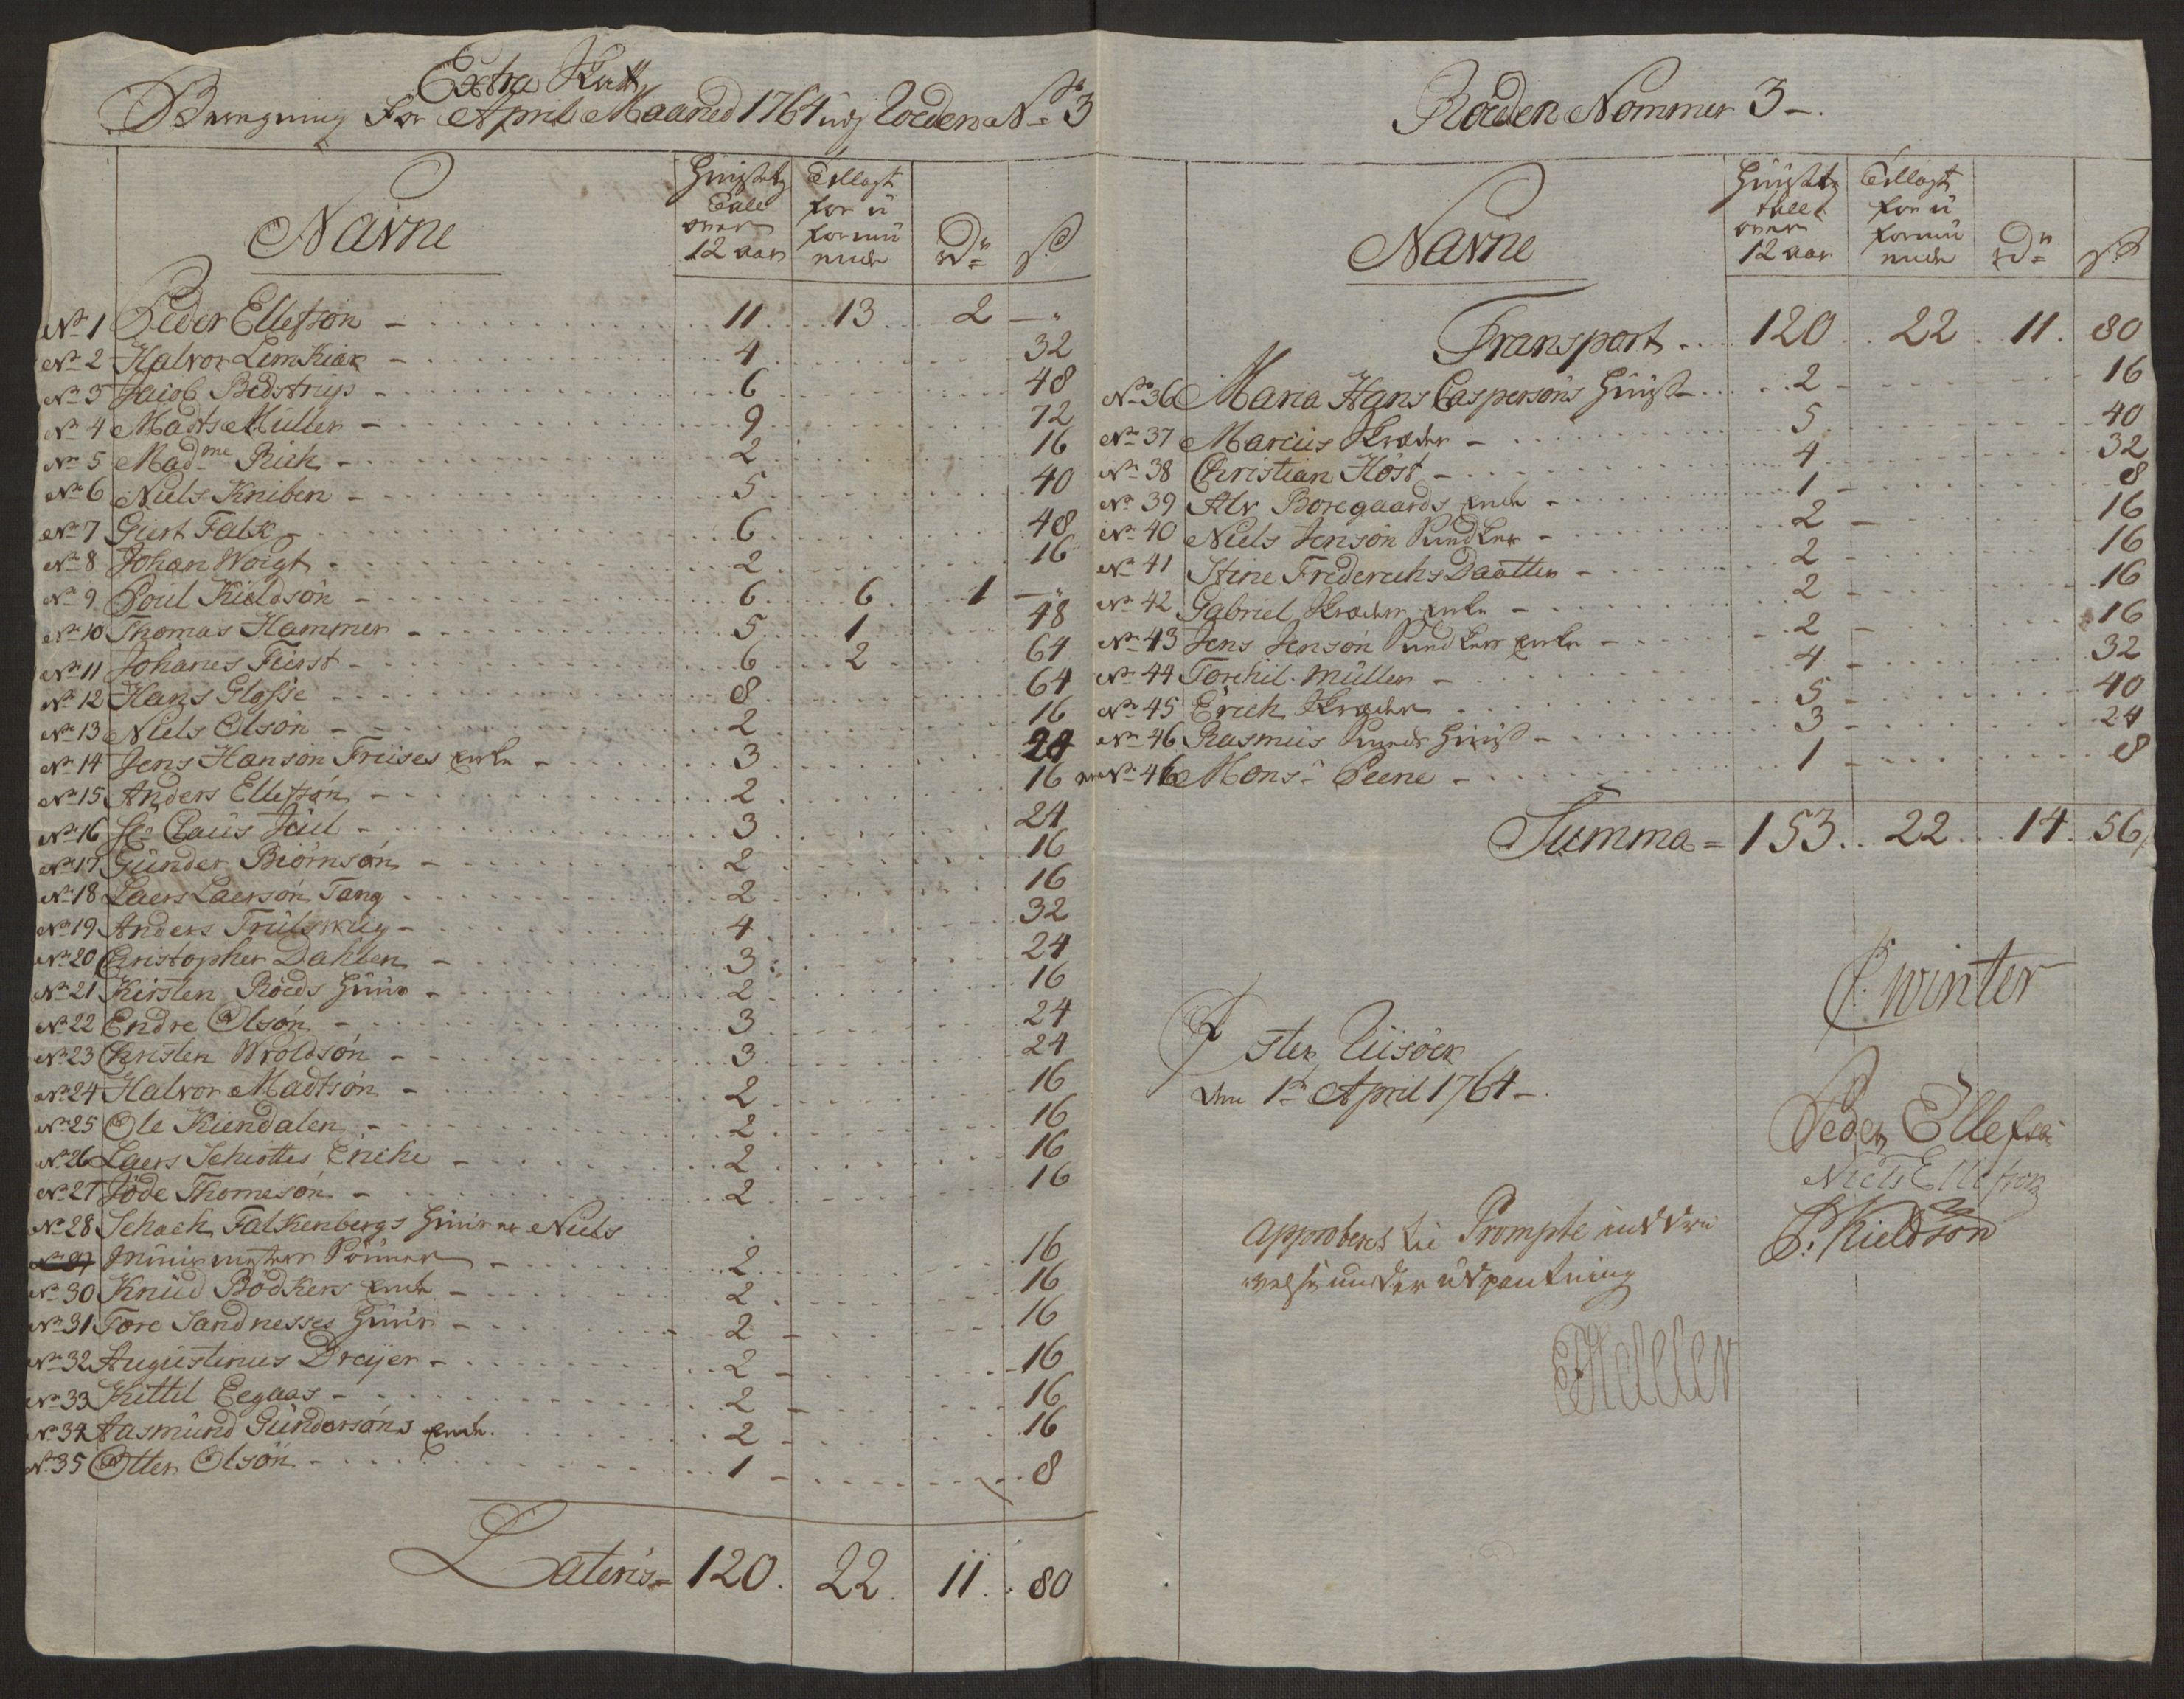 Extra Skatt
Beregning for April Maaned 1764 udj Roeden No 3
Navne
Huusets Tall over 12 aar
Tillagt for u formu ende
Rdr
S
No 1 Peder Ellefsön - 11 13 2 -"
No 2 Halvor Lemkier - 4 32
No 3 Jacob Bedstrup - 6 48
No 4 Madts Müller - 9 72
No 5 Madme Rich - 2 16
No 6 Niels Kniben - 5 40
No 7 Giert Falk - 6 48
No 8 Johan Woigt - 2 16
No 9 Poul Kieldsön - 6 6 1 -"
No 10 Thomas Hammer - 5 1 48
No 11 Johanes Fürst - 6 2 64
No 12 Hans Glosse - 8 64
No 13 Niels Olson - 2 16
No 14 Jens Hanson Friises enke - 3 24
No 15 Anders Ellefsön - 2 16
No 16 Sr Claus Juel - 3 24
No 17 Gunder Biörnsön - 2 16
No 18 Laers Laersön Tang - 2 16
No 19 Anders Trulsrug - 4 32
No 20 Christopher Dahlen - 3 24
No 21 Kirsten Röeds Huus - 2 16
No 22 Endre Olsön - 3 24
No 23 Christen Wroldsön - 3 24
No 24 Halvor Madtsön - 2 16
No 25 Ole Kiendalen - 2 16
No 26 Laers Schiöttes Enche - 2 16
No 27 Jöde Thomesön - 2 16
No 28 Schack Falkenbergs Huus er Niels
Muurmester Pönner - 2 16
No 30 Knud Bödkers enke - 2 16
No 31 Tore Sandnesses Huus - 2 16
No 32 Augustinus Dreyer - 2 16
No 33 Kittil Eegaas - 2 16
No 34 Aasmund Gundersöns enke. 2 16
No 35 Otter Olsön - 1 8
Lateris = 120. 22. 11. 80
Roeden Nommer 3 -.
Navne
Huusets tall over 12 aar
Tillagt for u formu ende
Rdr
S
Transport 120 22 11. 80
No 36 Maria Hans Caspersöns Huus - 2 16
No 37 Marcus Skreder - 5 40
No 38 Christian Höst - 4 32
No 39 Alv Boregaards enke - 1 8
No 40 Niels Jensön Snedker - 2 16
No 41 Stine Frederichs Daatter - 2 16
No 42 Gabriel Skreders enke - 2 16
No 43 Jens Jensön Snedkers enke - 2 16
No 44 Torchil Müller - 4 32
No 45 Erich Skreder - 5 40
No 46 Rasmus Smeds Huus - 3 24
No 46 Monsr Peene - 1 8
Summa = 153. 22. 14. 56
C. Winter
Øster Riisöer
den 1te April 1764 -.
Peder Ellefsen
Niels Ellefsen
P. Kieldsön
Approberes til Prompte inddri
velse under udpantning